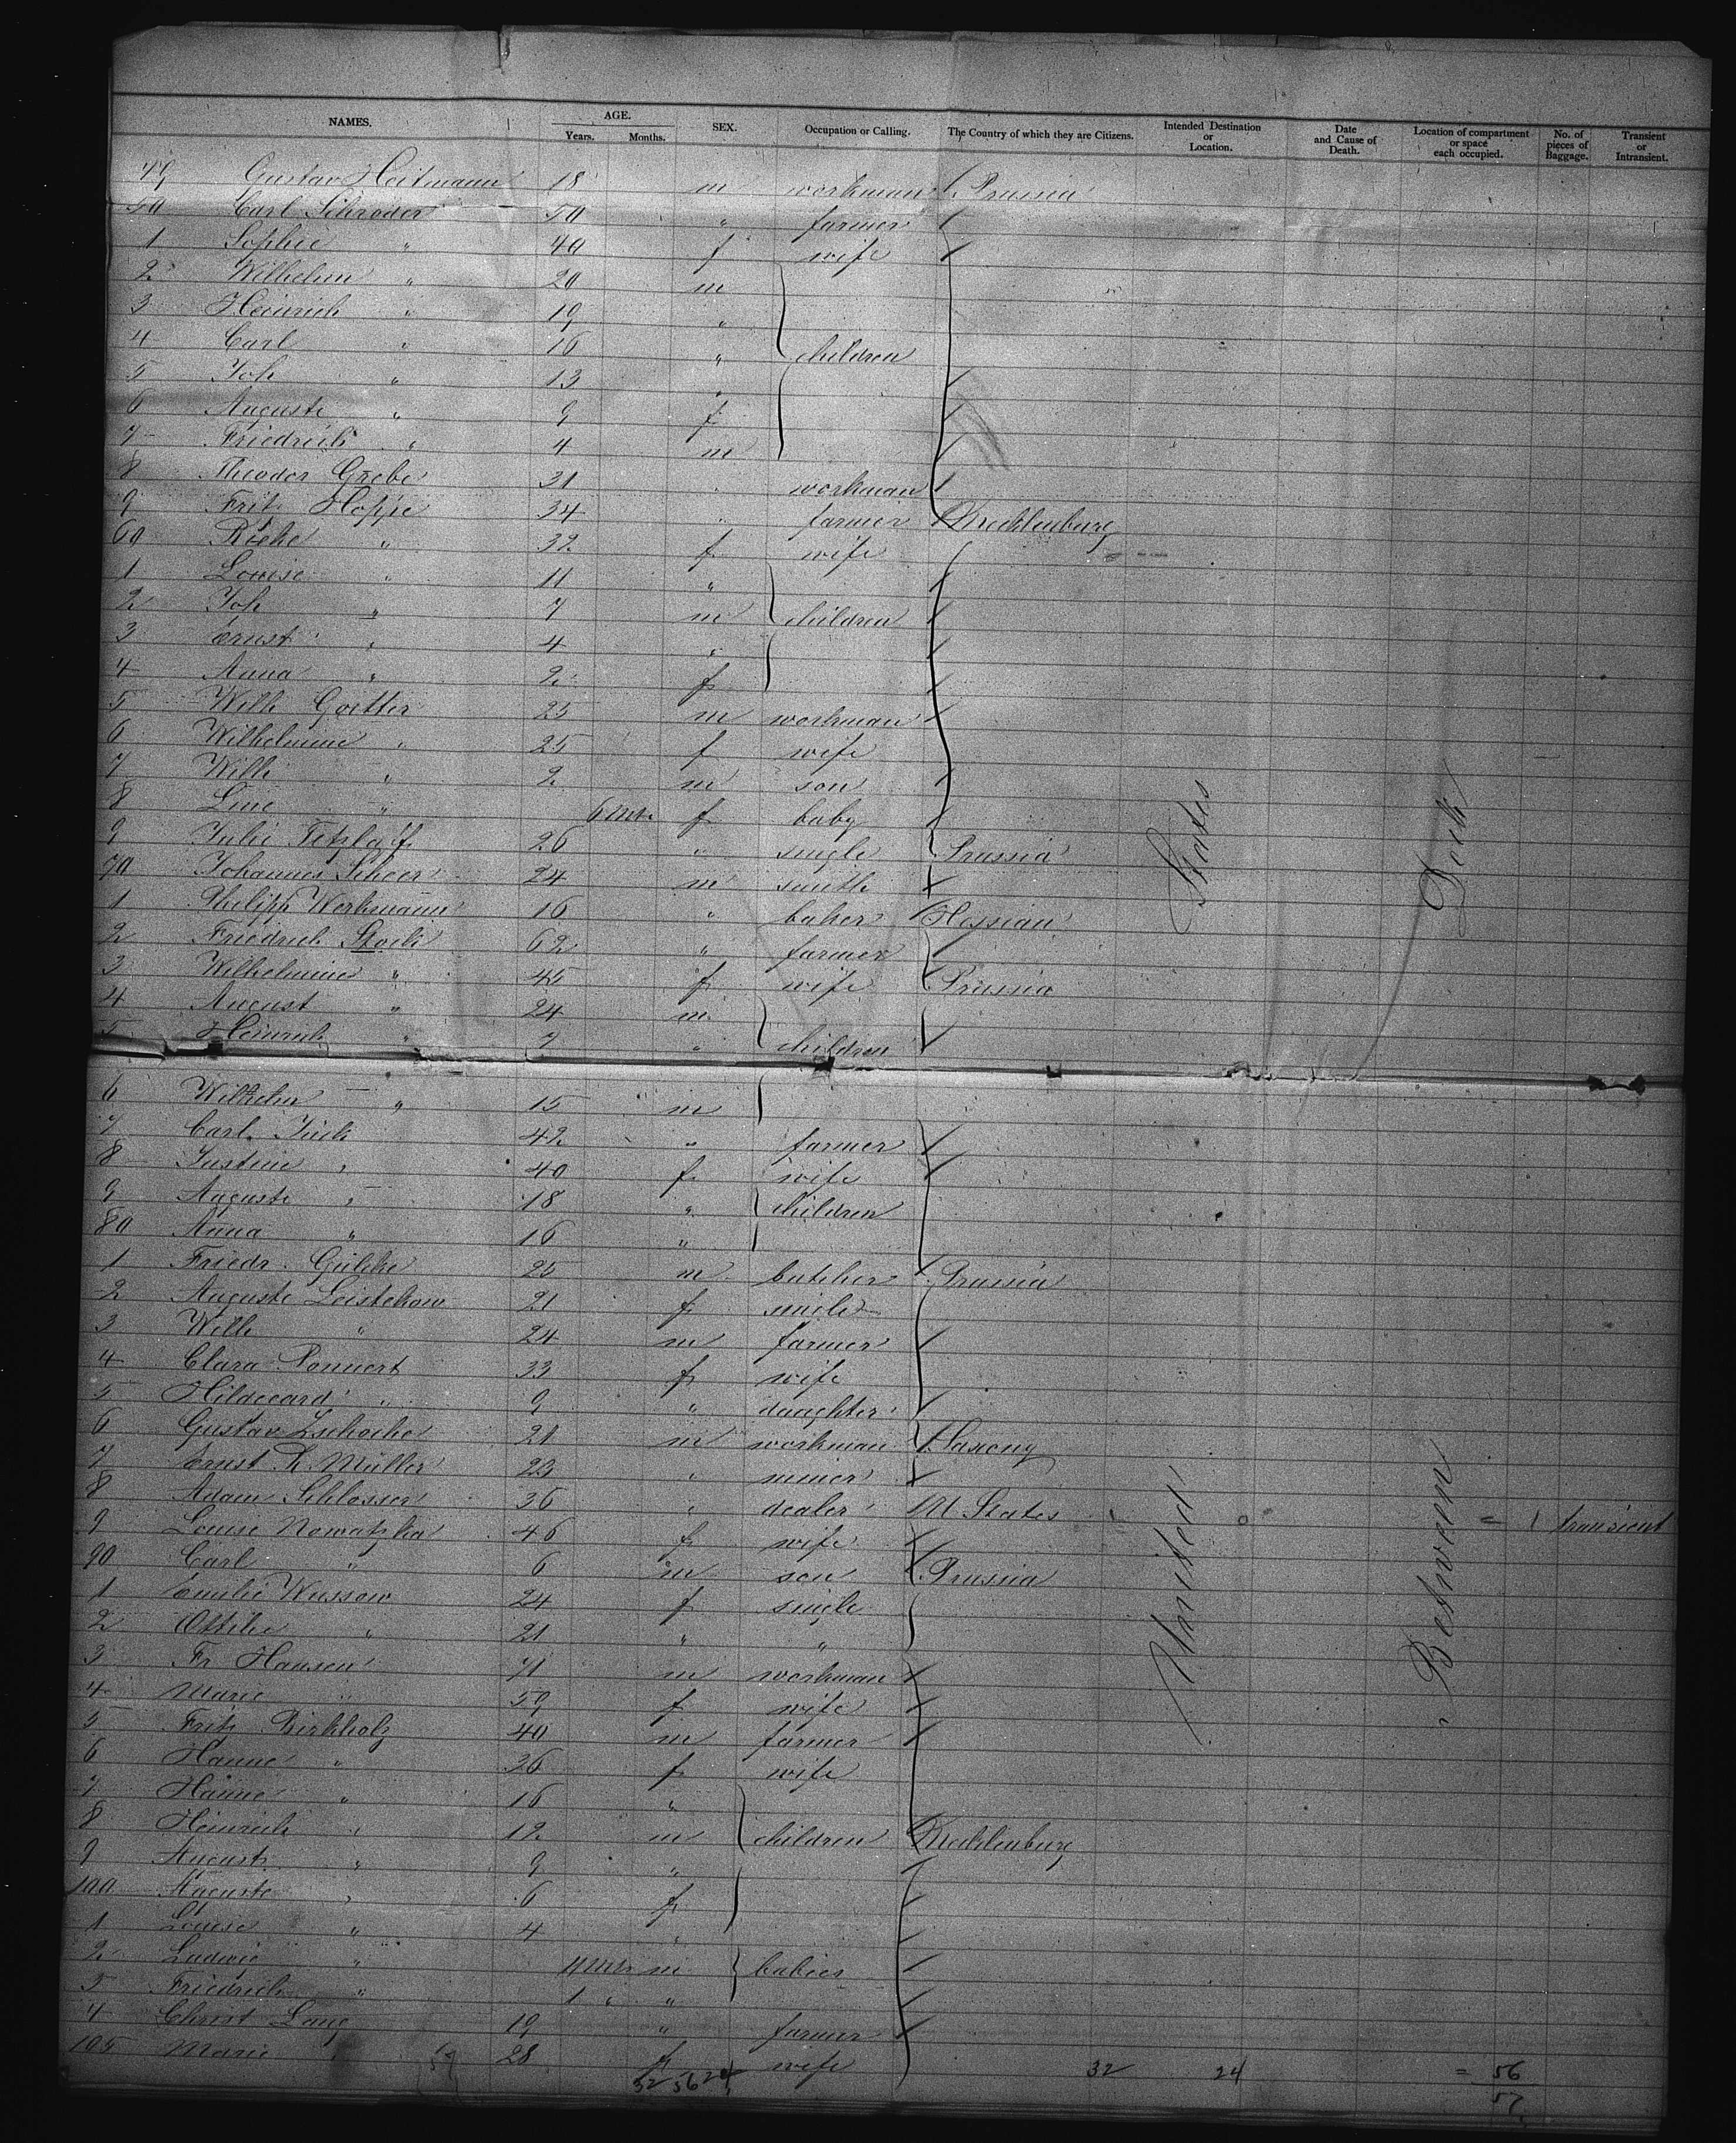 NAMES. AGE. Years. Months. SEX. Occupation or Calling. The Country of which they are Citizens. Intended Destination or Location. Date and Cause of Death. Location of compartment or space each occupied. No. of pieces of Baggage. Transient or Intransient.
49 Gustav Heitmann 18 m workman Prussia
50 Carl Schroder 50 " farmer
1 Sophie " 40 f wife
2 Wilhelm " 20 m
3 Heinrich " 19 "
4 Carl " 16 " children
5 Joh " 13 "
6 Auguste " 9 f
7 Friedrich " 4 m
8 Theodor Grebe 31 workman
9 Fritz Hoppe 34 " farmer Mecklenburg
60 " 32 f wife
1 Louise " 11 "
2 Joh " 7 m children
3 Ernst " 4 "
4 Anna " 2 f
5 Wilh Goetter 25 m workman
6 Wilhelmine " 25 f wife
7 Wilh " 2 m son
8 Line " 6 Mt. f baby
9 Julie 26 " single Prussia
70 Johannes Scheer 24 m smith
1 Philipp Werkmann 16 " baker Hessian
2 Friedrich 62 " farmer
3 Wilhelmine " 45 f wife Prussia
4 August " 24 m
5 Heinrich " 7 " children
6 Wilhelm " 15 m
7 Carl 42 " farmer
8 Justine " 40 f wife
9 Auguste " 18 " children
80 Anna " 16 "
1 Friedr. Gülcke 25 m butcher Prussia
2 Auguste Leistekow 21 f single
3 Wilh " 24 m farmer
4 Clara Ponnert 33 f wife
5 Hildegard " 9 " daughter
6 Gustav Zschoche 21 m workman Saxony
7 Ernst R. Müller 23 " miner
8 Adam Schlosser 36 " dealer U. States 1 transient
9 Louise Nowatzka 46 f wife
90 Carl " 6 m son Prussia
1 Emilie Wussow 24 f single
2 Ottilie " 21 " "
3 Fr Hansen 71 m workman
4 Marie " 59 f wife
5 Fritz Birkholz 40 m farmer
6 Hanne " 36 f wife
7 Hanne " 16 "
8 Heinrich " 12 m children Mecklenburg
9 August " 9 "
100 Auguste " 6 f
1 Louise " 4 "
2 Ludwig " 11 Mt. m babies
3 Friedrich " 1 " "
4 Christ Lang 19 " farmer
105 Marie " 28 f wife
United States
Between Deck
57 32 56 24 32 24 = 56
57